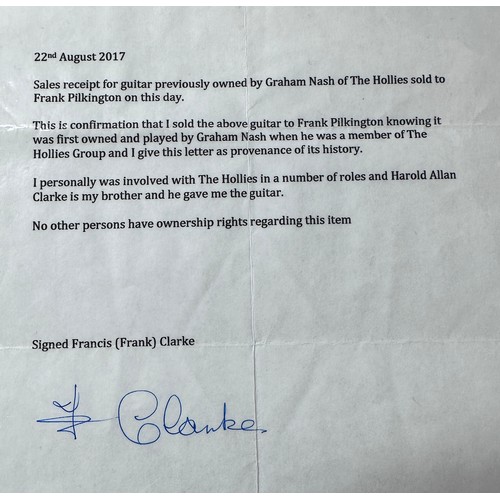 22nd August 2017
Sales receipt for guitar previously owned by Graham Nash of The Hollies sold to
Frank Pilkington on this day.
This is confirmation that I sold the above guitar to Frank Pilkington knowing it
was first owned and played by Graham Nash when he was a member of The
Hollies Group and I give this letter as provenance of its history.
I personally was involved with The Hollies in a number of roles and Harold Allan
Clarke is my brother and he gave me the guitar.
No other persons have ownership rights regarding this item
Signed Francis (Frank) Clarke
F Clarke.